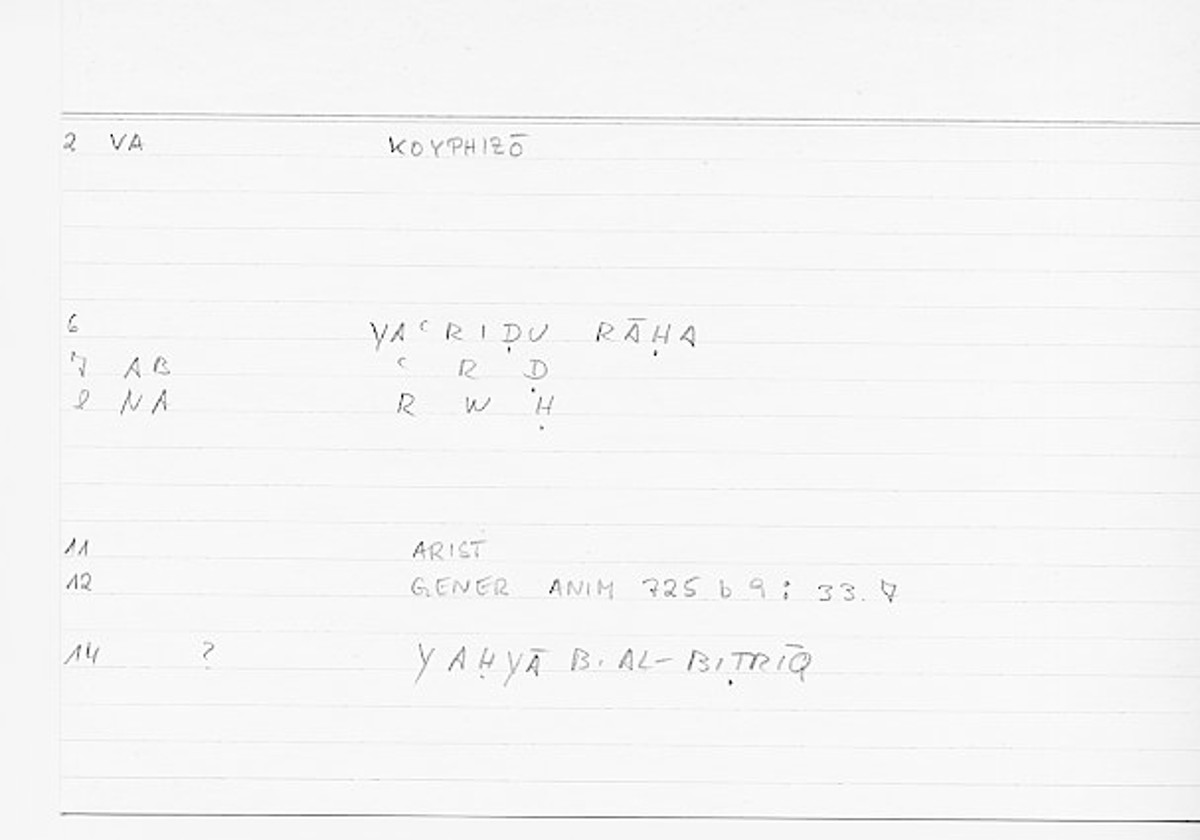 2 VA KOYPHIZŌ
6 YAʿRIḌU RĀḤA
7 AB ʿ R Ḍ
8 NA R W Ḥ
11 ARIST
12 GENER ANIM 725 b 9 : 33.7
14 ? YAḤYĀ B. AL-BIṬRĪQ